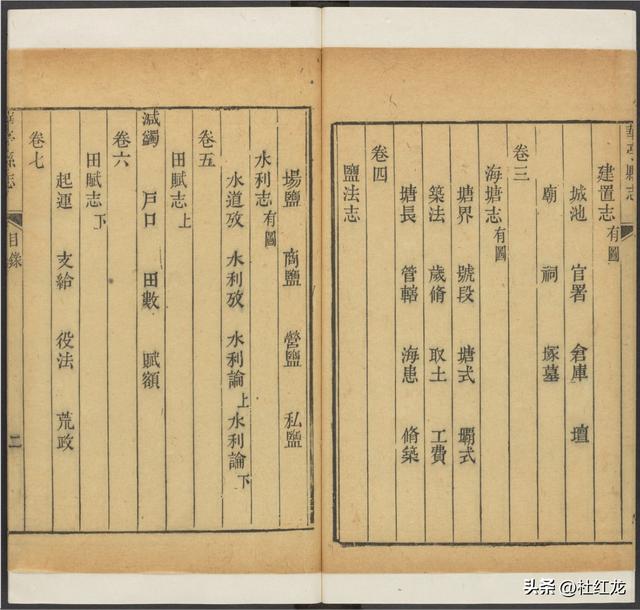 華亭縣志
建置志有圖
城池 官署 倉庫 壇
廟 祠 塚墓
卷三
海塘志有圖
塘界 號段 塘式 壩式
築法 歲脩 取土 工費
塘長 管轄 海患 脩築
卷四
鹽法志
場鹽 商鹽 營鹽 私鹽
水利志有圖
水道攷 水利攷 水利論上 水利論下
卷五
田賦志上
減蠲 戶口 田數 賦額
卷六
田賦志下
卷七
起運 支給 役法 荒政
華亭縣志
目錄
二
头条 @杜红龙